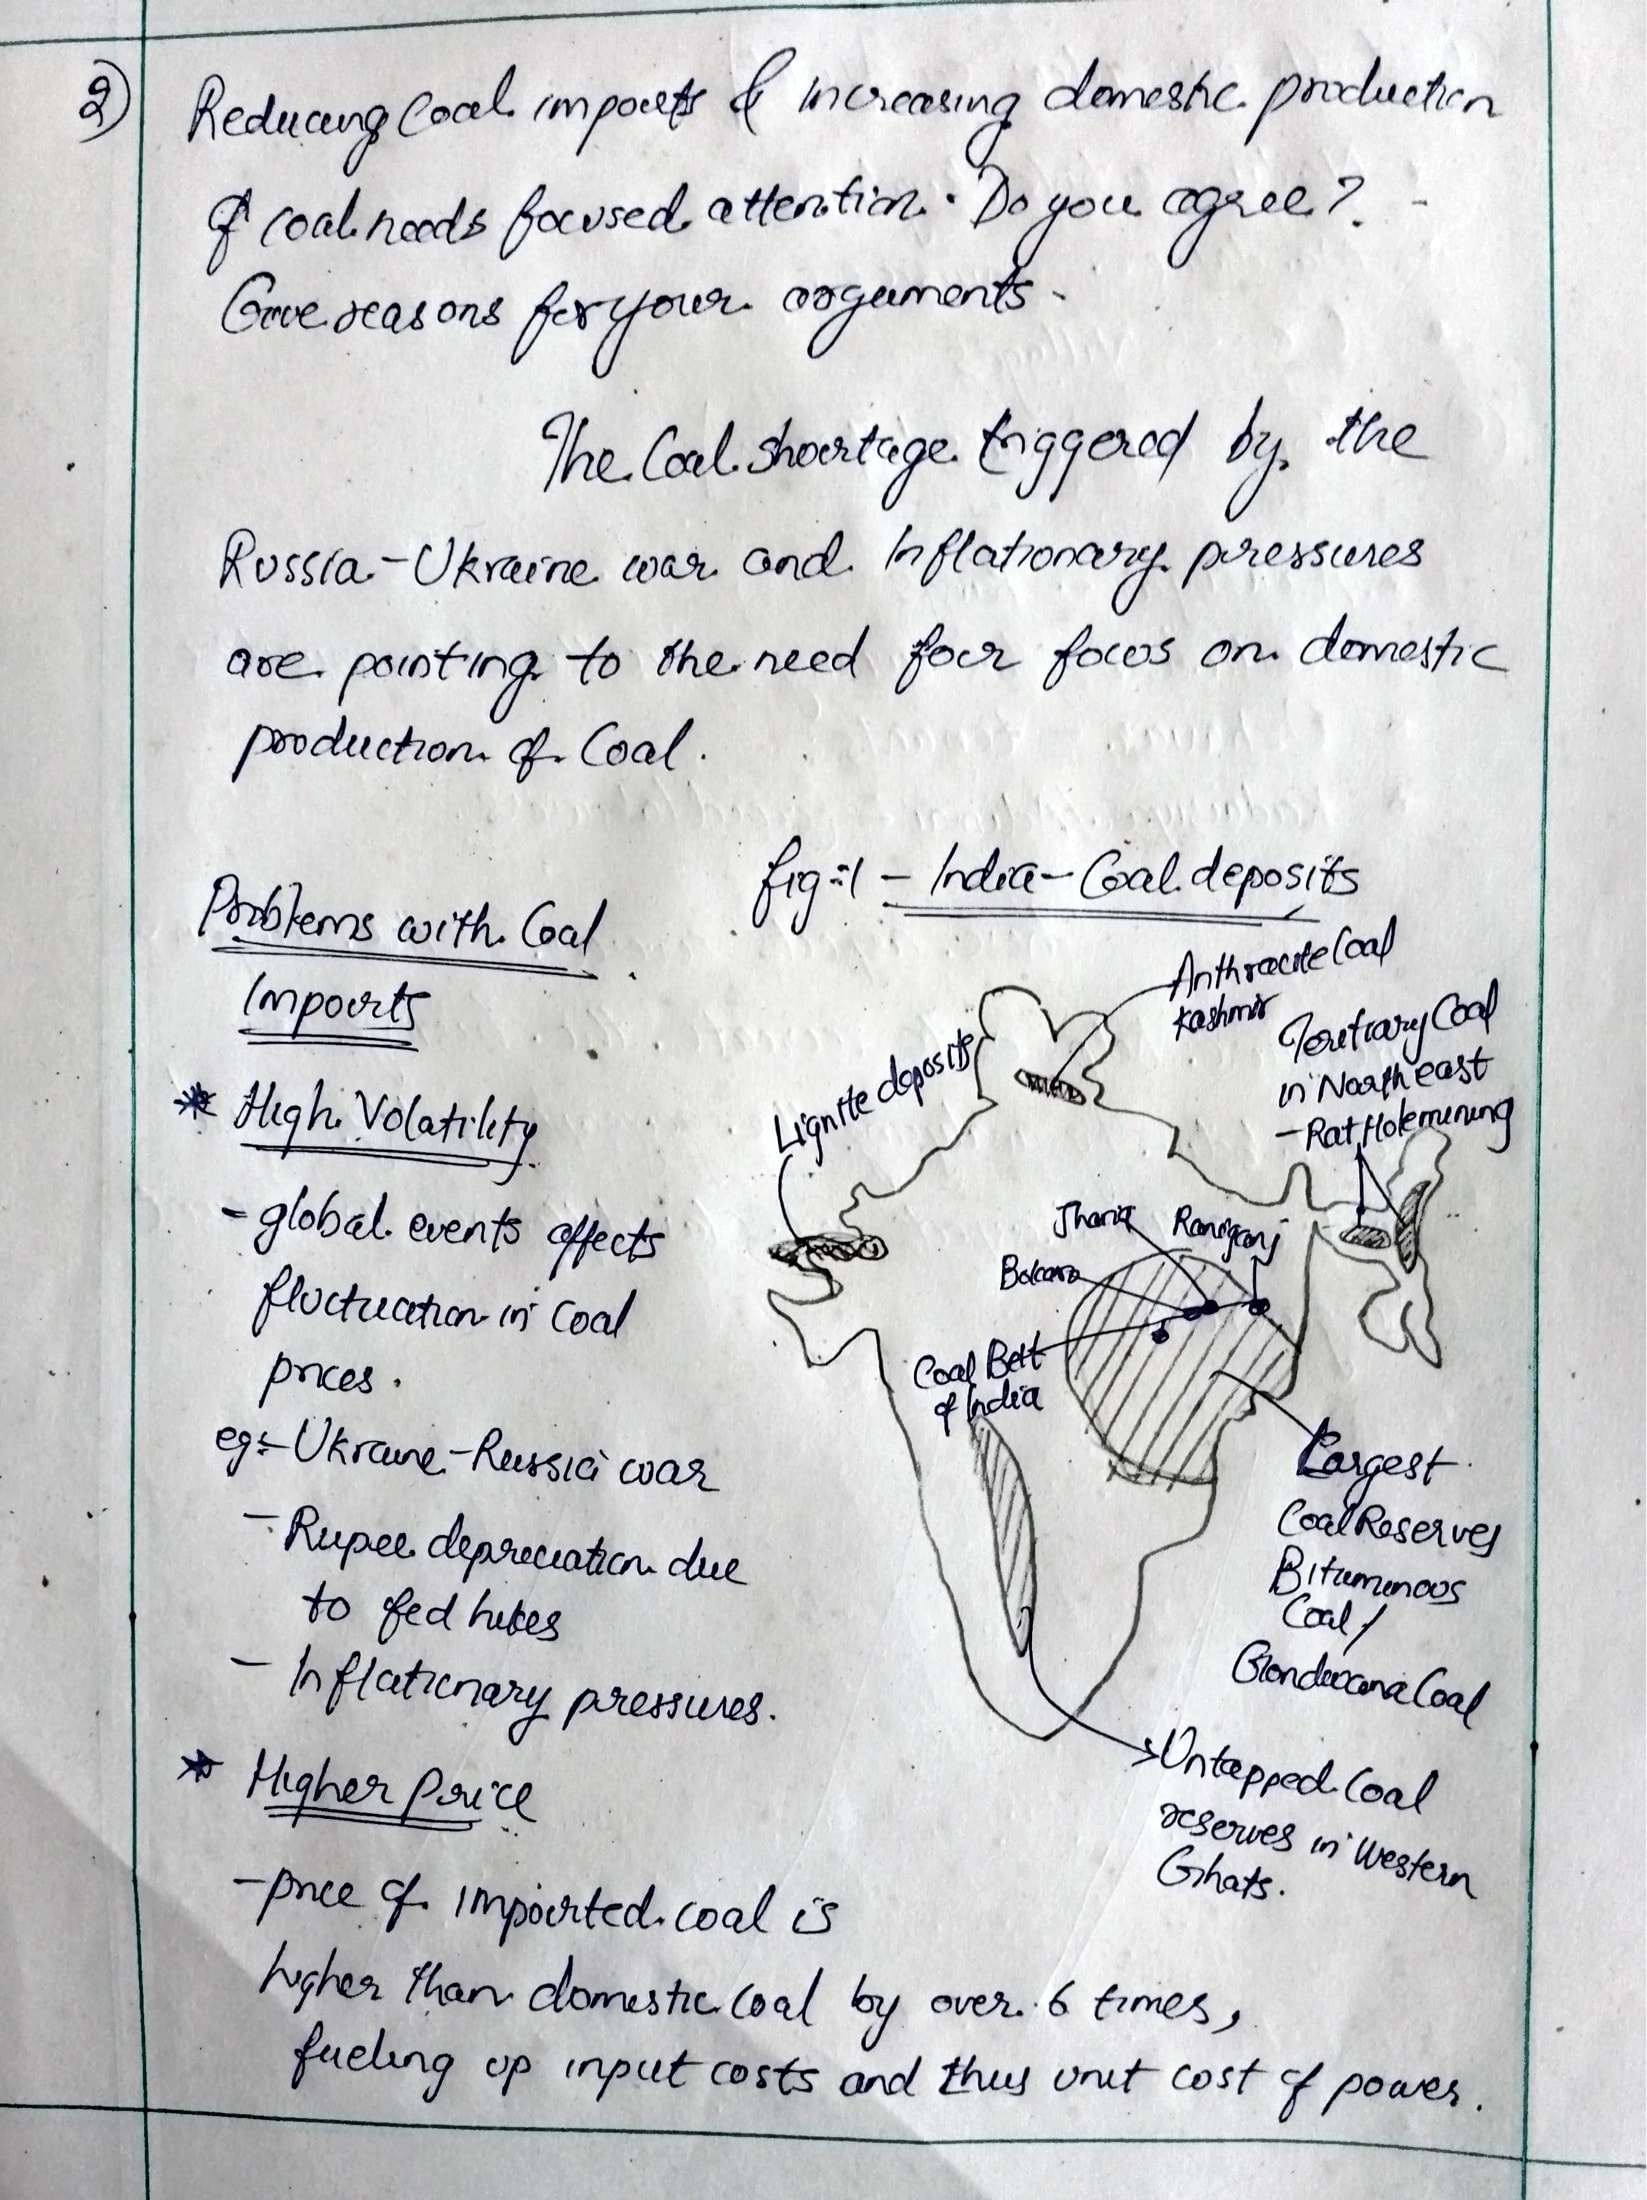 2)
Reducing Coal imports & increasing domestic production
of coal needs focused attention. Do you agree?
Give reasons for your arguments.
The Coal shortage triggered by the
Russia-Ukraine war and Inflationary pressures
are pointing to the need for focus on domestic
production of Coal.
fig:1 - India - Coal deposits
Problems with Coal
Imports
* High Volatility
- global events affects
fluctuation in coal
prices.
eg:- Ukraine-Russia war
- Rupee depreciation due
to fed hikes
- Inflationary pressures.
* Higher Price
- price of imported coal is
higher than domestic coal by over 6 times,
fueling up input costs and thus unit cost of power.
Anthracite Coal
Kashmir
Tertiary Coal
in North east
- Rat Hole mining
Lignite deposits
Jharia
Raniganj
Bokaro
Coal Belt
of India
Largest
Coal Reserves
Bituminous
Coal /
Gondwana Coal
Untapped Coal
reserves in Western
Ghats.